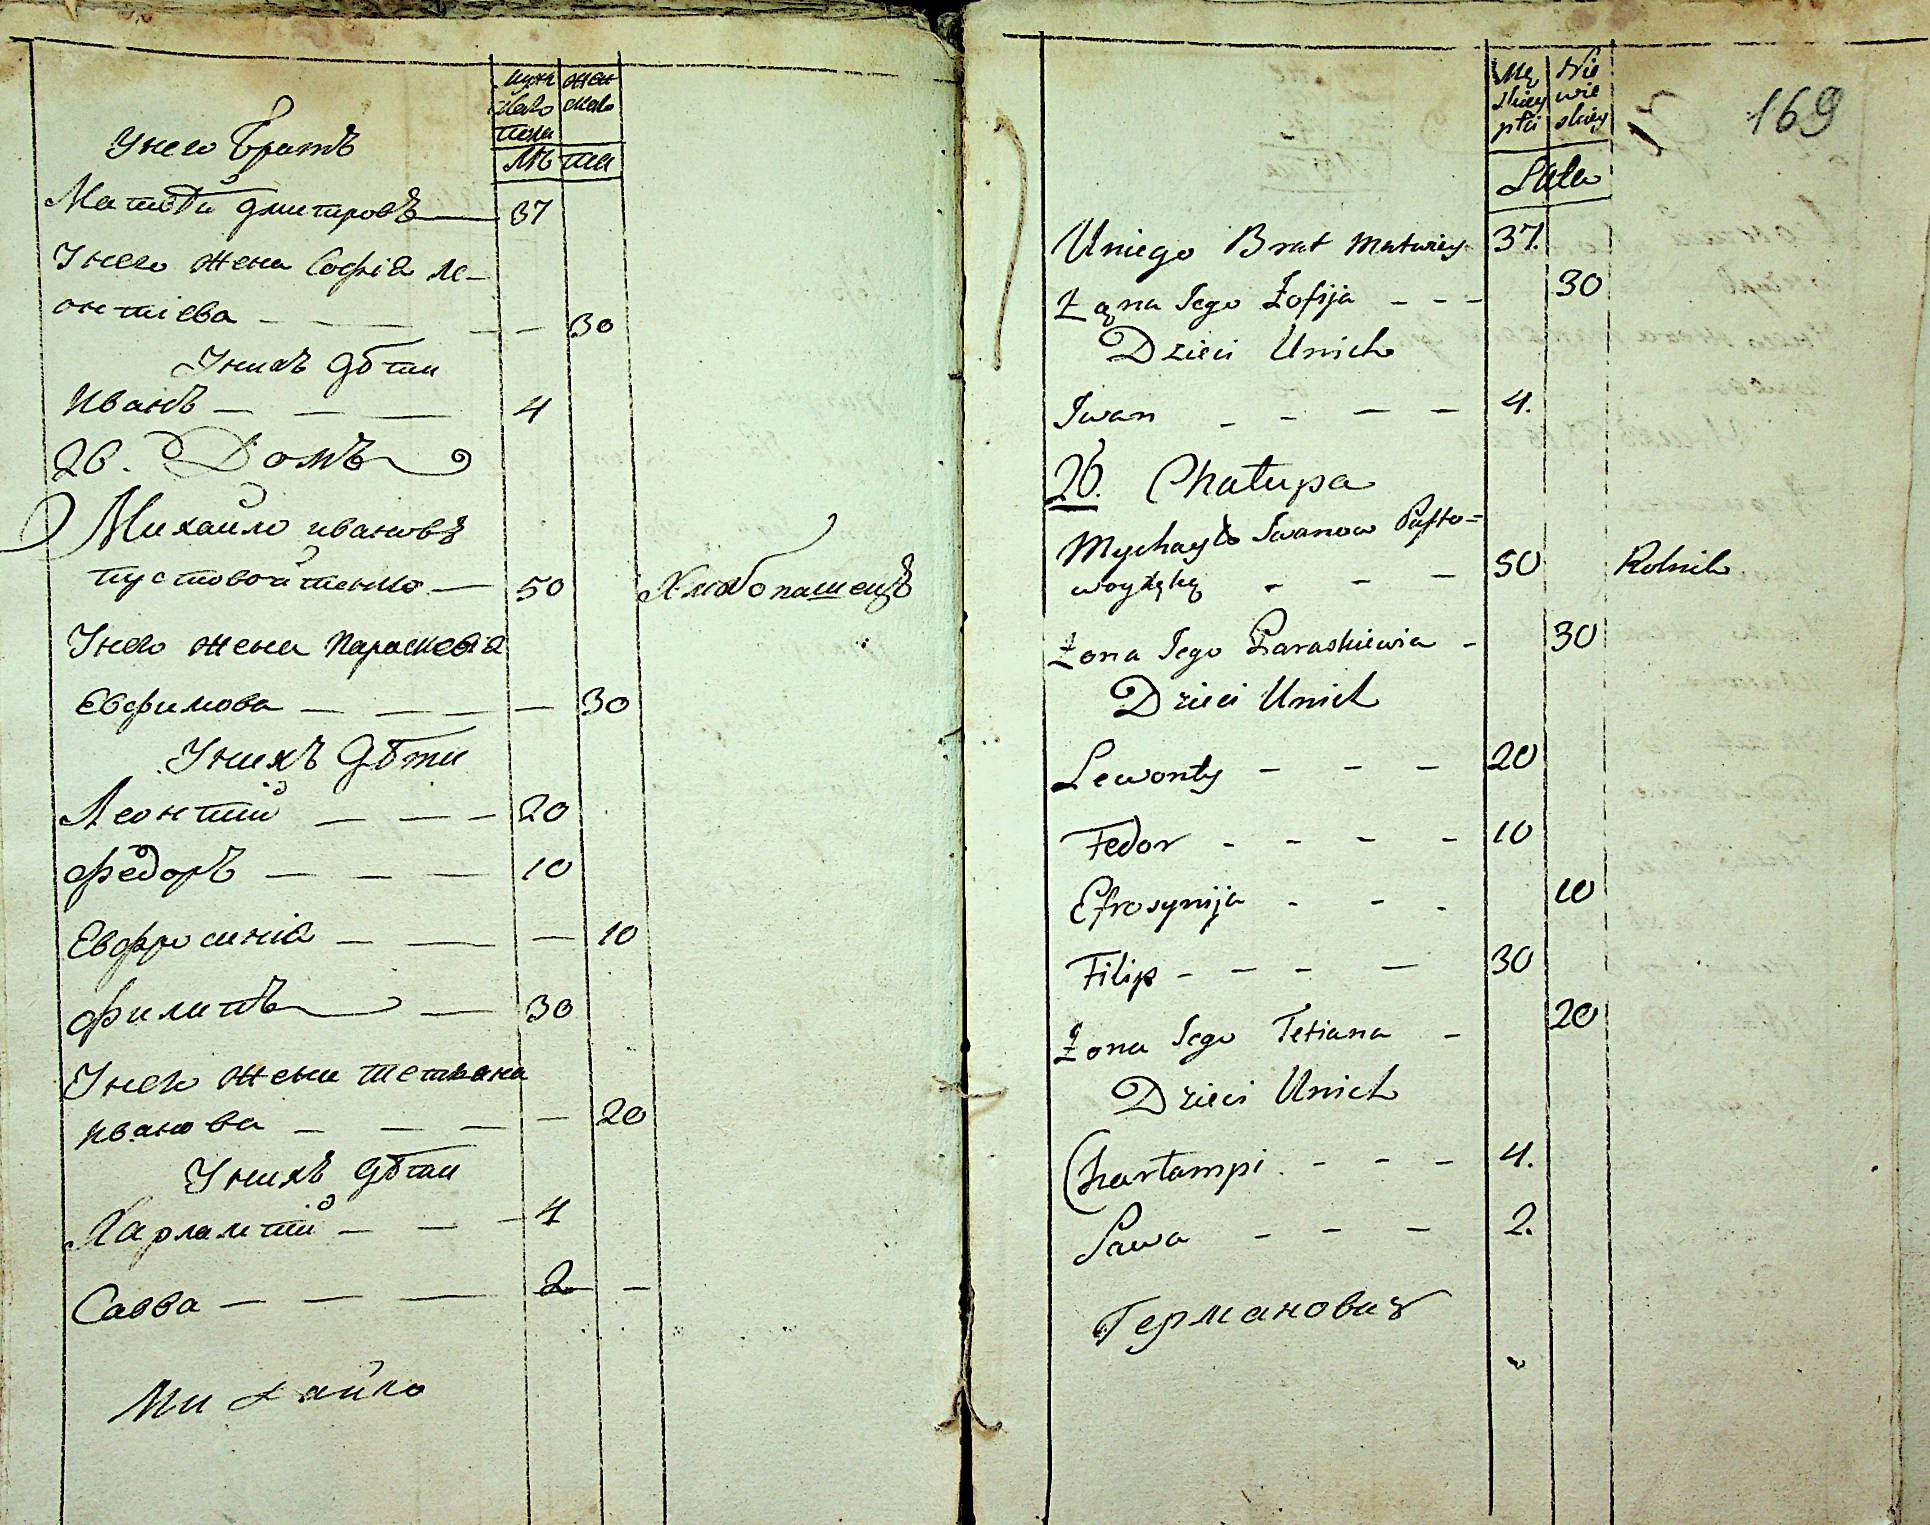 Мужеска пола
женска
Лѣта
Унего братъ
Матвѣй Дмитровъ — 37
Унего жена Софія Ле-
онтіева — — — — — 30
Унихъ дѣти
Иванъ — — — 4
26. Домъ
Михайло Ивановъ
пустовойтенко — 50 Хлѣбопашецъ
Унего жена Параскевія
Евфимова — — — — 30
Унихъ дѣти
Леонтій — — — 20
Фёдоръ — — — 10
Евфросинія — — — — 10
Филипъ — 30
Унего жена Тетіана
Иванова — — — — 20
Унихъ дѣти
Харлампій — — — 4
Савва — — — 2 —
Михайло
169
Mę
skiey
płci
Nie
wie
skiey
Lata
Uniego Brat Matwiey 37.
Żona Iego Zofija - - - 30
Dzieci Unich
Iwan - - — — 4.
26. Chałupa
Mychayło Iwanow Pusto=
woytęką - - — 50 Rolnik
Żona Iego Paraskiewia - 30
Dzieci Unich
Lewonty - - — 20
Fedor - - - - 10
Efrosynija - - - 10
Filip - - - — 30
Żona Iego Tetiana - 20
Dzieci Unich
Charłampi - - — 4.
Sawa - - — 2.
Германовичъ